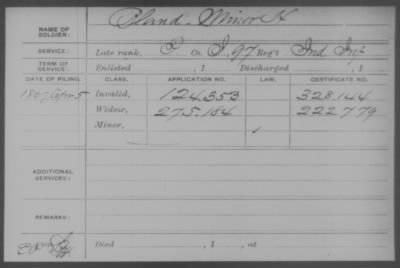 NAME OF SOLDIER: Bland, Minor H
SERVICE: Late rank, P Co. I, 97 Reg't Ind Inf
TERM OF SERVICE: Enlisted , 1 Discharged , 1
DATE OF FILING. CLASS. APPLICATION NO. LAW. CERTIFICATE NO.
1867 Apr 5 Invalid, 124.353 328.144
Widow, 275.184 222.779
Minor,
ADDITIONAL SERVICES:
REMARKS:
Died , 1 , at